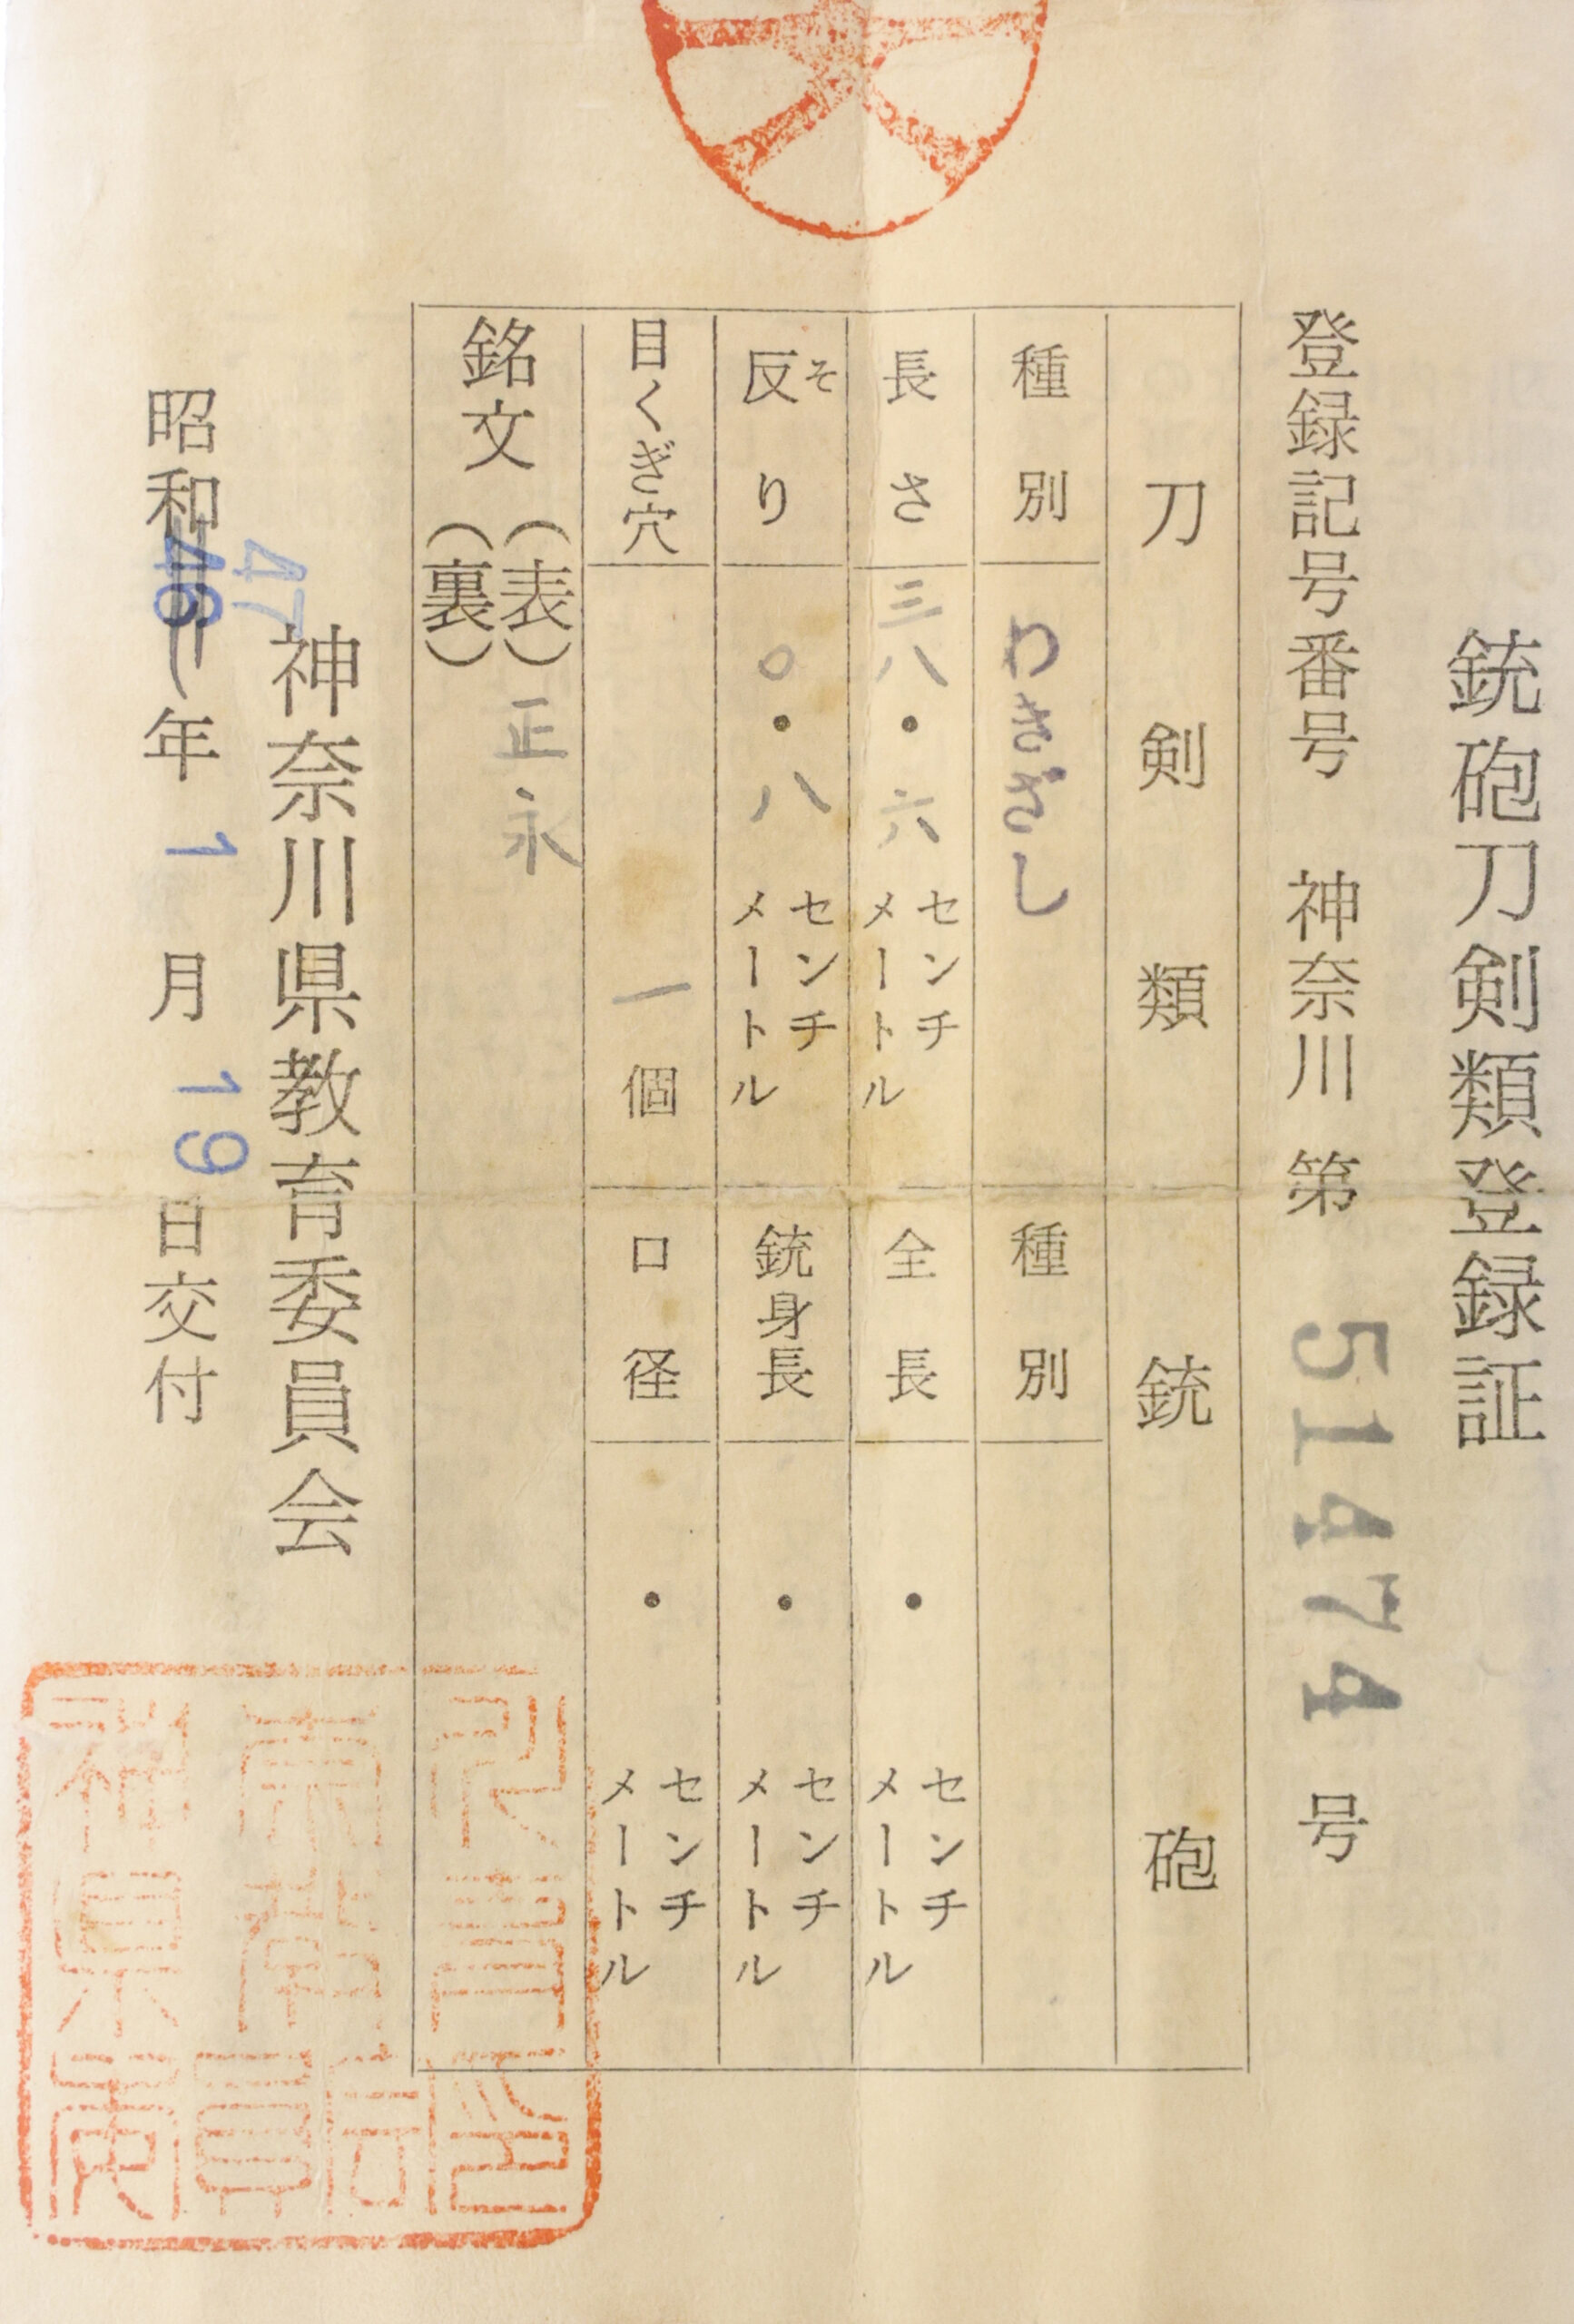 銃砲刀剣類登録証
登録記号番号 神奈川 第 51474 号
刀剣類
銃砲
種別 わきざし
種別
長さ 三八・六 センチメートル
全長 ・ センチメートル
反り そ 〇・八 センチメートル
銃身長 ・ センチメートル
目くぎ穴 一個
口径 ・ センチメートル
銘文 (表) 正永
(裏)
神奈川県教育委員会
47
昭和46年1月19日交付